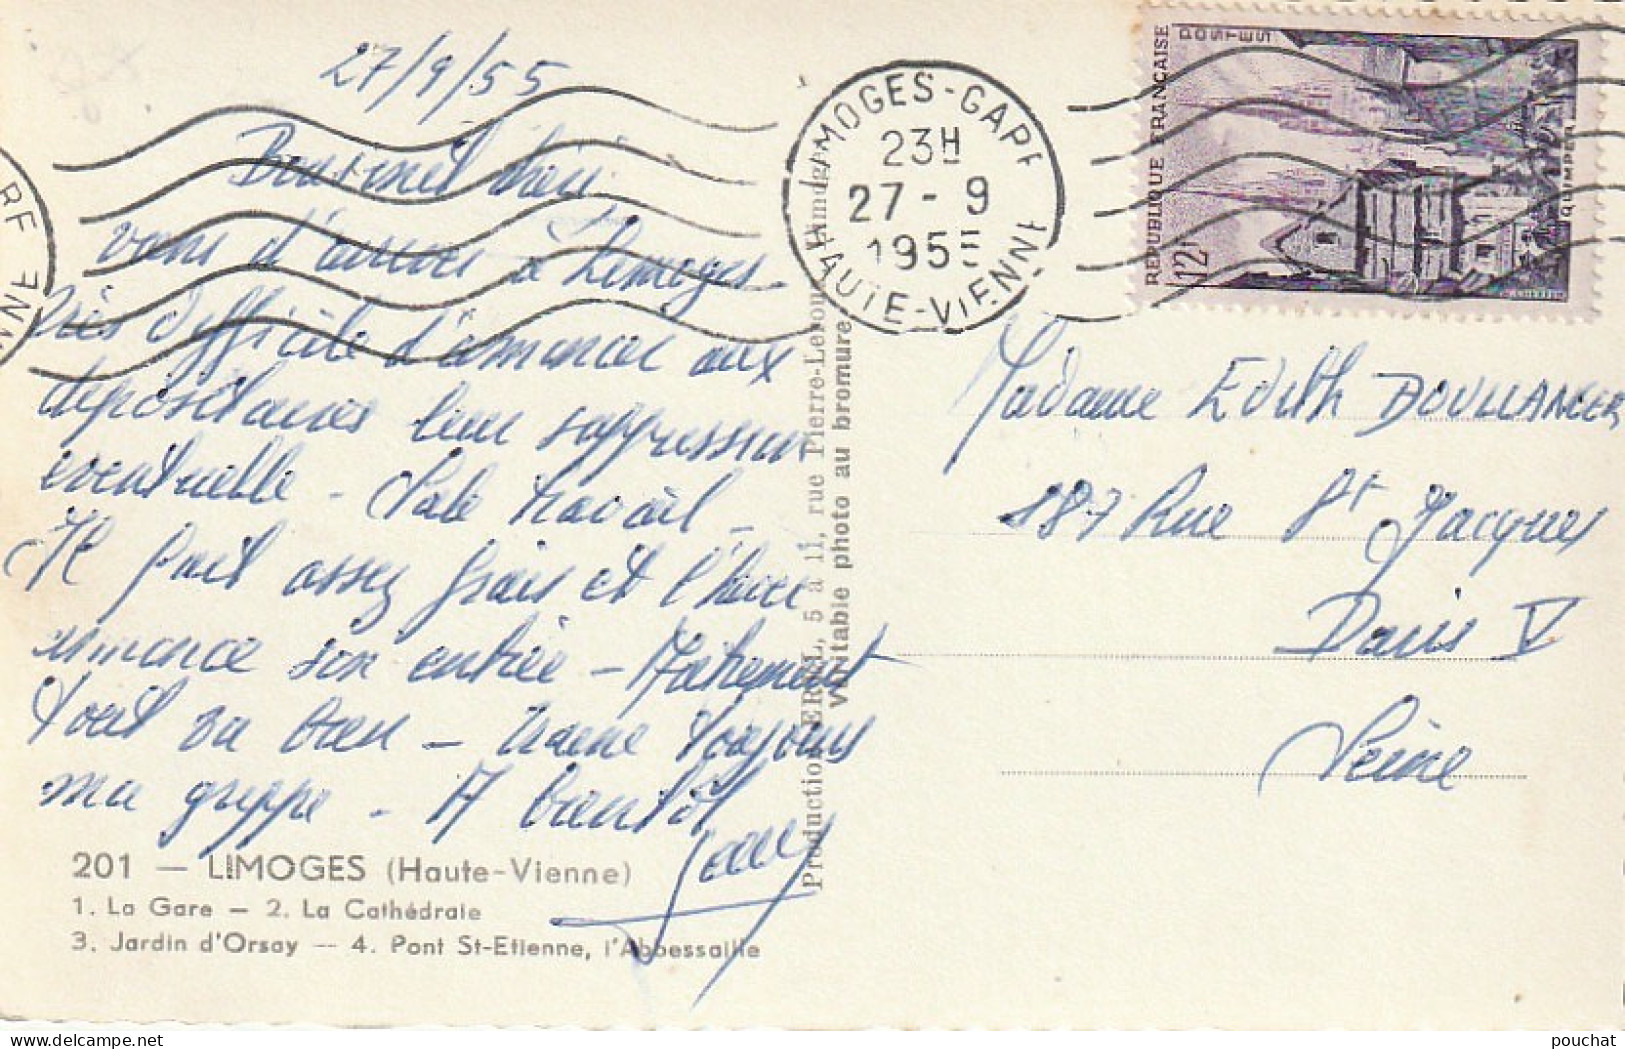 27/9/55
Bonsoir chéri
viens d'arriver à Limoges.
Très difficile d'annoncer aux
dépositaires leur suppression
éventuelle - Sale travail -
Il fait assez frais et l'hiver
annonce son entrée - Autrement
tout va bien - traine toujours
ma grippe - A bientôt
201 — LIMOGES (Haute-Vienne)
1. La Gare — 2. La Cathédrale
3. Jardin d'Orsay — 4. Pont St-Etienne, l'Abbessaille
rue Pierre-Leroux
Véritable photo au bromure
LIMOGES-GARE
23H
27 - 9
1955
HAUTE-VIENNE
REPUBLIQUE FRANÇAISE
POSTES
12f
QUIMPER
Madame Edith BOULLANGER
187 Rue St Jacques
Paris V
Seine
pouchat
www.delcampe.net